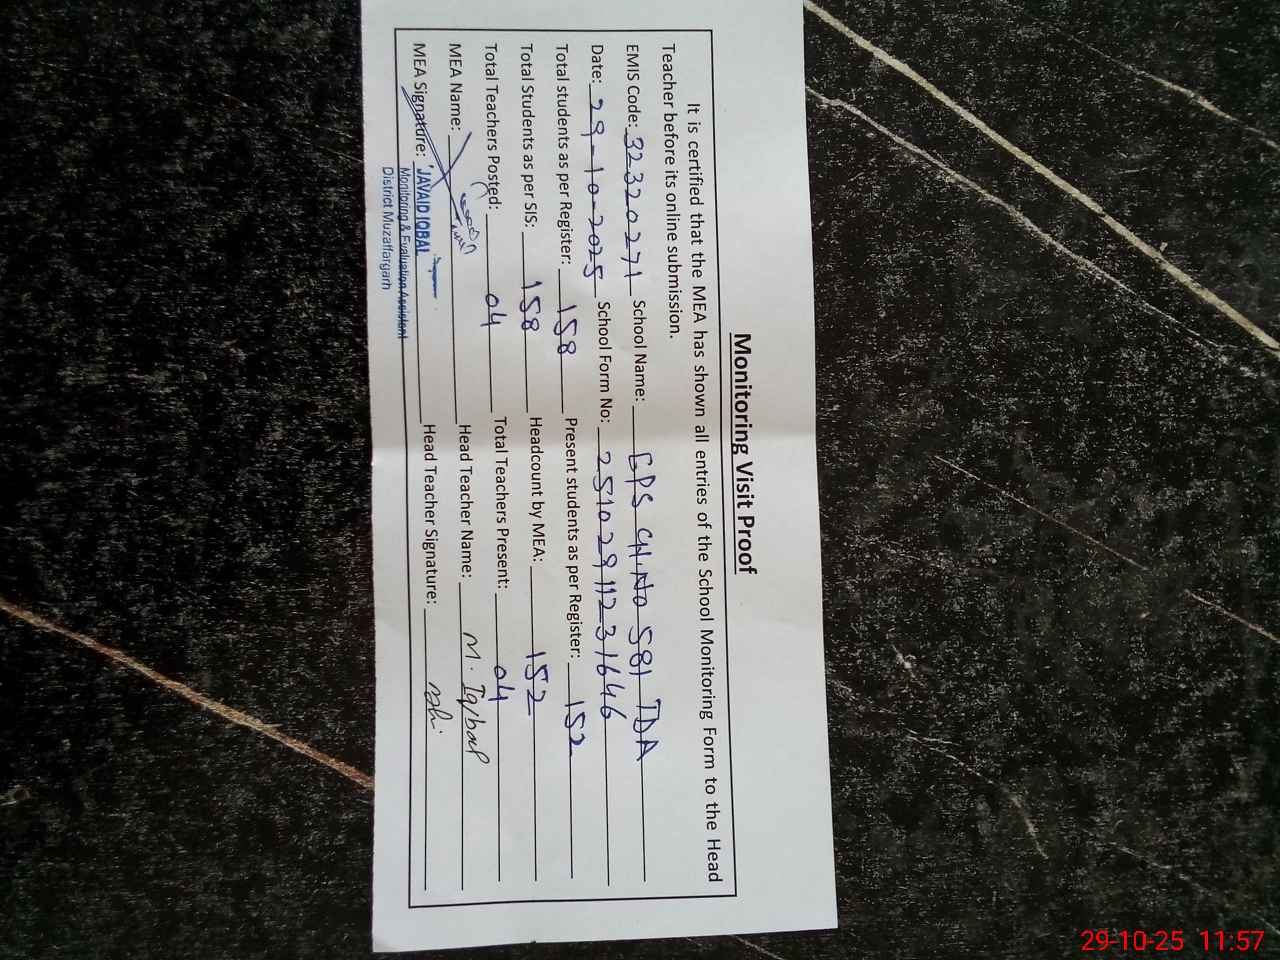 Monitoring Visit Proof
It is certified that the MEA has shown all entries of the School Monitoring Form to the Head
Teacher before its online submission.
EMIS Code: 32320271 School Name: GPS CH.NO 581 TDA
Date: 29-10-2025 School Form No: 25102911231646
Total students as per Register: 158 Present students as per Register: 152
Total Students as per SIS: 158 Headcount by MEA: 152
Total Teachers Posted: 04 Total Teachers Present: 04
MEA Name: Head Teacher Name: M. Iqbal
MEA Signature: JAVAID IQBAL Head Teacher Signature:
Monitoring & Evaluation Assistant
District Muzaffargarh
29-10-25 11:57